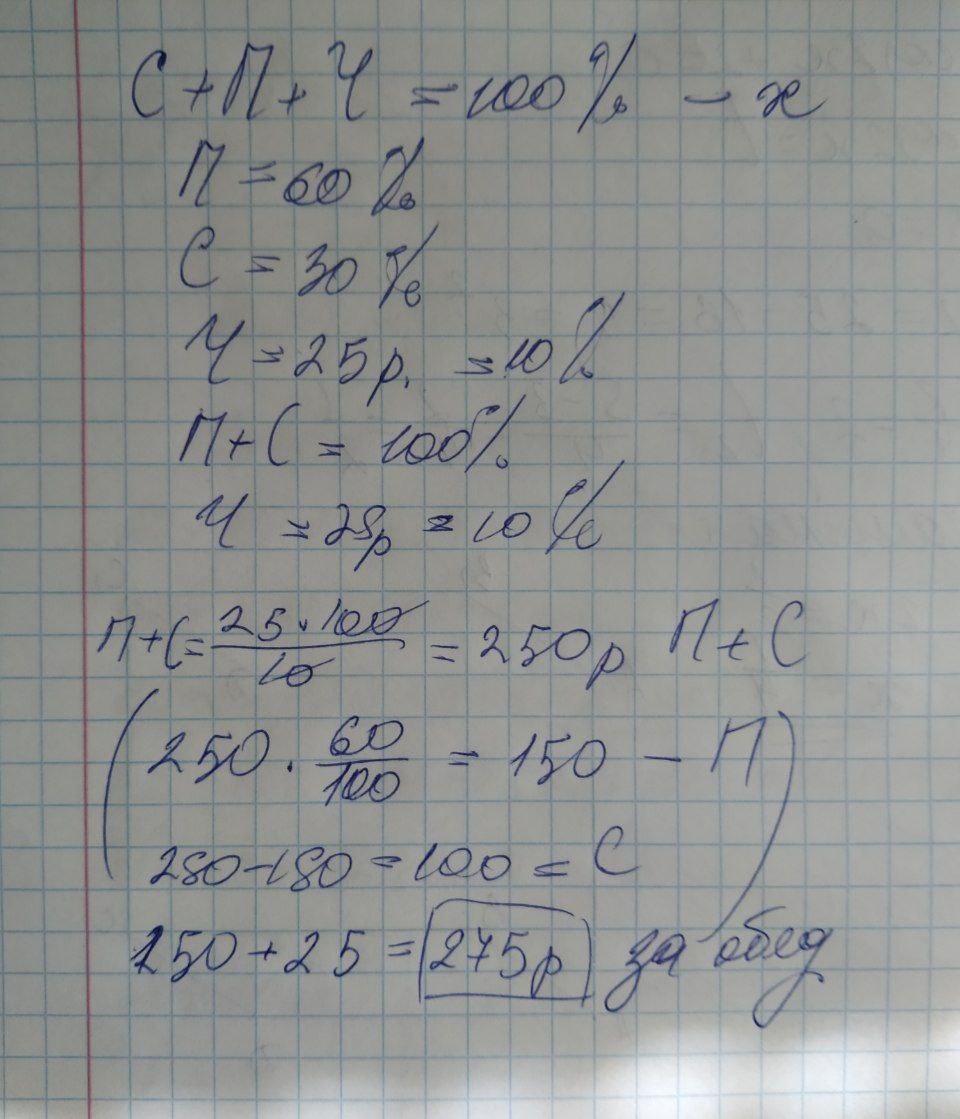 С + П + Ч = 100% – х
П = 60%
С = 30%
Ч = 25р. = 10%
П + С = 100%
Ч = 25р = 10%
П+С = 25·100/10 = 250р П + С
(250 · 60/100 = 150 – П
250–150 = 100 = С)
250 + 25 = 275р за обед